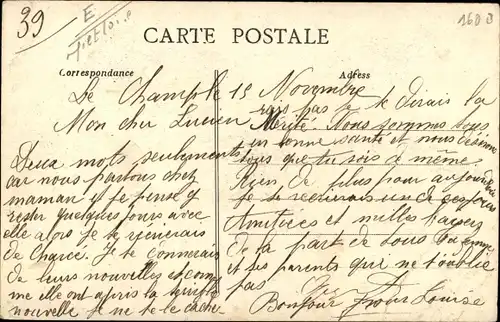 39
E
1600
CARTE POSTALE
Correspondance
Adress
Le 15 Novembre
Mon cher Lucien
Deux mots seulement
car nous partons chez
maman et je pense y
rester quelques jours avec
elle alors je
de Je te
de leurs nouvelles et com
me elle ont appris la terrible
nouvelle je ne te le cacher
rais pas je te dirais la
Vérité. Nous sommes tous
en bonne santé et nous
tous que tu sois de même.
Rien de plus pour aujourd'hui
je te un de ces jours
Amitiées et milles
de la part de tous Ta femme
et ses parents qui ne t'oublie
pas
Bonjour Louise